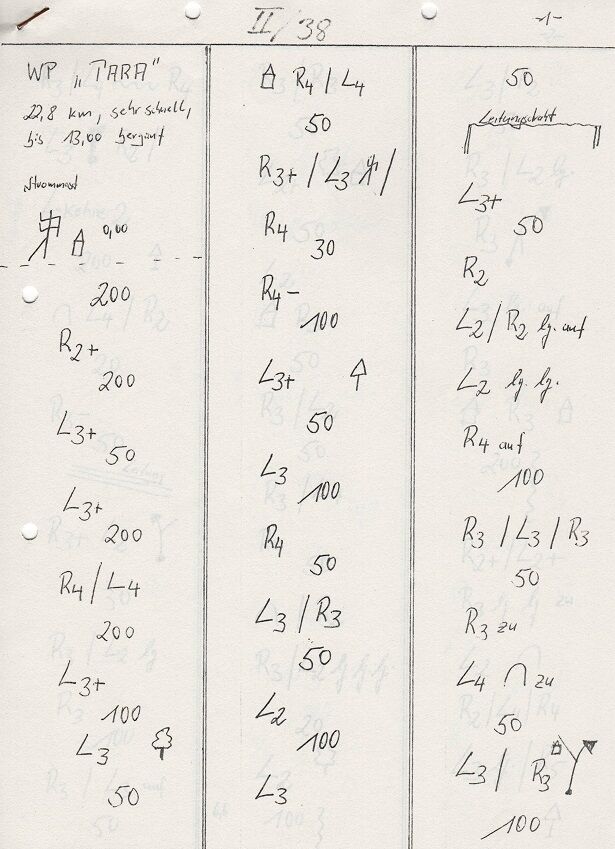 II/38
-1-
WP „TARA"
22,8 km, sehr schnell,
bis 13,00 bergauf
Strommast
0,00
200
R2+
200
L3+
50
L3+
200
R4/L4
200
L3+
100
L3
50
R4/L4
50
R3+/L3/
R4
30
R4-
100
L3+
50
L3
100
R4
50
L3/R3
50
L2
100
L3
50
Leitungsdraht
L3+
50
R2
L2/R2 lg. auf
L2 lg. lg.
R4 auf
100
R3/L3/R3
50
R3 zu
L4 zu
50
L3/R3
100